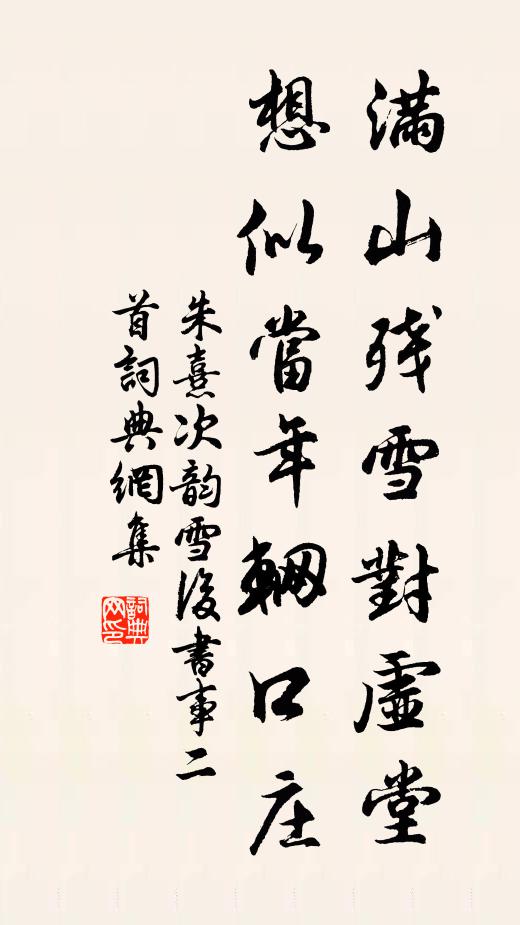 滿山残雪對虛堂
想似當年輞口庄
朱熹次韵雪後書事二
首詞典網集
詞典网印